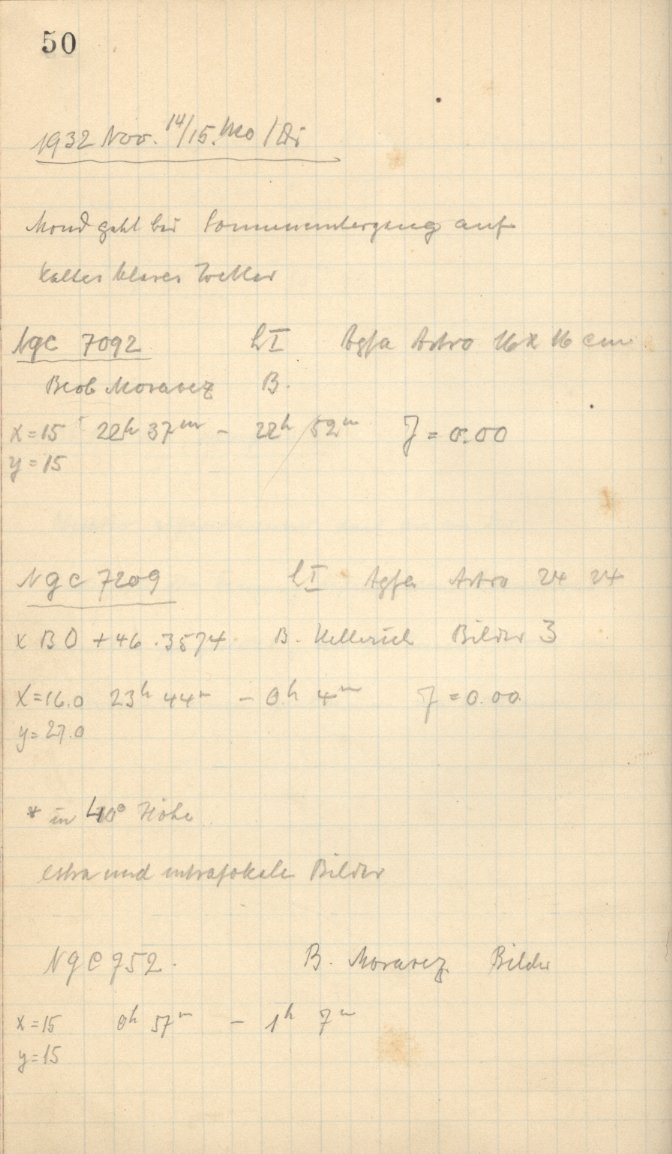 50
1932 Nov. 14/15. Mo/Di
Mond geht bei Sonnenuntergang auf
kaltes klares Wetter
NgC 7092 LI Agfa Astro 16x16 cm
Beob Moravez B.
x=15 22h 37m - 22h 52m J=0.00
y=15
NgC 7209 LI Agfa Astro 24 24
x BD +46.3574 B. Hellerich Bilder 3
X=16.0 23h 44m - 0h 4m J=0.00
y=27.0
* in 40° Höhe
extra und intrafokale Bilder
NgC 752. B. Moravez Bilder
x=15 0h 57m - 1h 7m
y=15